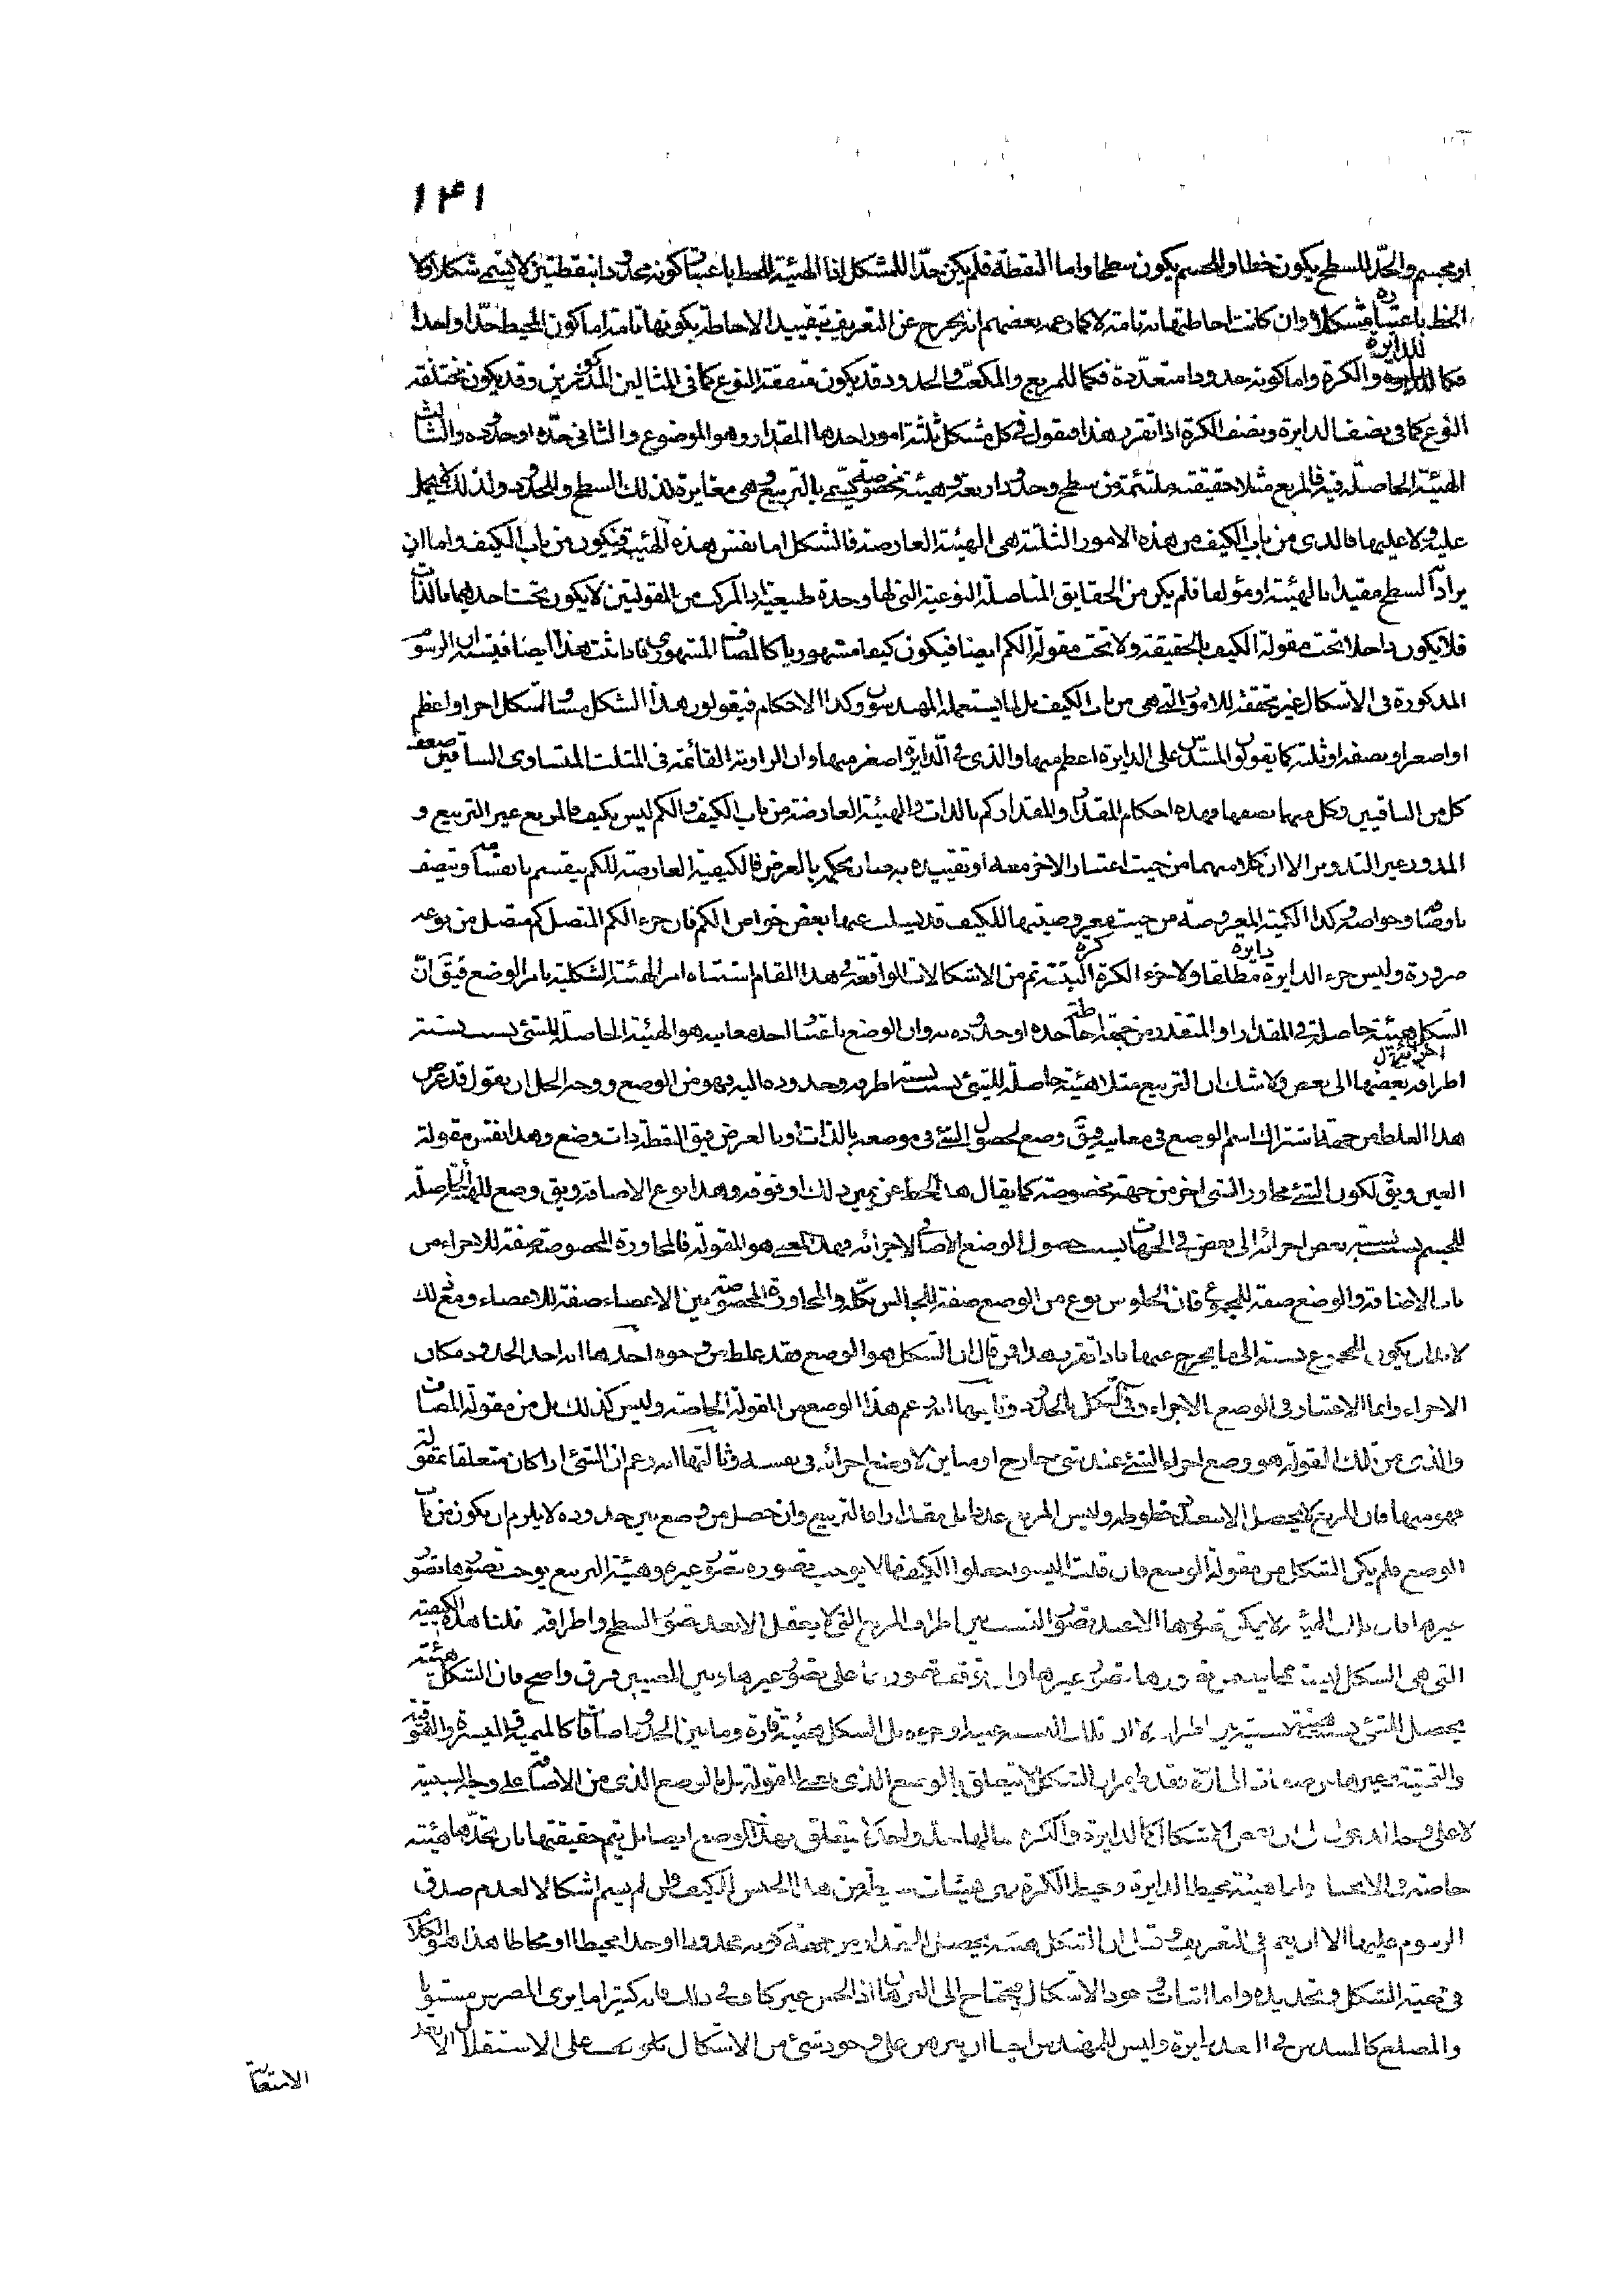 ١٤١
او مجسم والحدّ للسطح يكون خطا وللجسم يكون سطحا واما النقطة فلم يكن حدّا للمشكل اذ الهيئة للخط باعتبار كونه محدودا بنقطتين لا يسمى شكلا ولا
الخط باعتباره مشكلا وان كانت احاطتهما به تامة لا كما زعمه بعضهم انه يخرج عن التعريف بتقييد الاحاطة بكونها تامة اما كون المحيط حدّا واحدا
فكما للدايرة والكرة واما كونه حدودا متعدّدة فكما للمربع والمكعب والحدود قد يكون متفقة النوع كما فى المثالين المذكورين وقد يكون مختلفة
النوع كما فى نصف الدايرة ونصف الكرة اذا تقرر هذا فنقول فى كل مشكل ثلثة امور احدها المقدار وهو الموضوع والثانى حدّه او حدوده والثالث
الهيئة الحاصلة فيه فالمربع مثلا حقيقة ملتئمة من سطح وحدود اربعة وهيئة مخصوصة يسمى بالتربيع وهى مغايرة لذلك السطح وللحدود ولذلك لا يحمل
عليه ولا عليها فالذى من باب الكيف من هذه الامور الثلثة هى الهيئة العارضة فالشكل اما نفس هذه الهيئة فيكون من باب الكيف واما ان
يراد السطح مقيدا بالهيئة او مؤلفا فلم يكن من الحقايق المتاصلة النوعية التى لها وحدة طبيعية اذ المركب من المقولتين لا يكون تحت احديهما بالذات
فلا يكون داخلا تحت مقولة الكيف بالحقيقة ولا تحت مقولة الكم ايضا فيكون كيفا مشهوريا كالمضاف المشهورى فاذا ثبت هذا ايضا فيشبه ان الرسوم
المذكورة فى الاشكال غير محققة للامور التى هى من باب الكيف بل لما يستعمله المهندسون وكذا الاحكام فيقولون هذا الشكل مساو لشكل اخر او اعظم
او اصغر او نصفه او ثلثه كما يقولون المسدس على الدايرة اعظم منها والذى فى الدايرة اصغر منها وان الزاوية القائمة فى المثلث المتساوى الساقين ضعف
كل من الساقيين وكل منهما نصفها فهذه احكام المقدار والمقدار كم بالذات والهيئة العارضة من باب الكيف والكم ليس بكيف فالمربع غير التربيع و
المدور غير التدوير الا ان كلا منهما من حيث اعتبار الاخر معه او تقييده به صار بحكمه بالعرض فالكيفية العارضة للكم ينقسم بانقسامه ويتصف
باوصافه وخواصه وكذا الكمية المعروضة من حيث معروضيتها للكيف قد يسلب عنها بعض خواص الكم فان جزء الكم المتصل كم متصل من نوعه
ضرورة وليس جزء الدايرة دايرة مطلقا ولا جزء الكرة كرة البتة ثم من الاشكالات الواقعة فى هذا المقام اشتباه امر الهيئة الشكلية بامر الوضع فيق انّ
الشكل هيئة حاصلة فى المقدار او المتقدر من جهة احاطة حده او حدوده به وان الوضع باعتبار احد معانيه هو الهيئة الحاصلة للشئ بسبب نسبة
اطرافه بعضها الى بعض ولا شك ان التربيع مثلا هيئة حاصلة للشئ بسبب نسبة اطرافه وحدوده اليه فهو من الوضع ووجه الحل ان يقول قد عرض
هذا الغلط من جهة اشتراك اسم الوضع فى معانيه فيق وضع لحصول الشئ فى موضعه بالذات او بالعرض فيق النقطة ذات وضع وهذا نفس مقولة
الاين ويق لكون الشئ مجاور الشئ اخر من جهة مخصوصة كما يقال هذا الخط عن يمين ذلك او فوقه وهذا نوع الاضافة ويق وضع للهيئة الحاصلة
للجسم بسبب نسبة بعض اجزائه الى بعض فى الجهات بسبب حصول الوضع الاضافى لاجزائه وهذا المعنى هو المقولة فالمجاورة المخصوصة صفة للاجزاء من
باب الاضافة والوضع صفة للمجموع فان الجلوس نوع من الوضع صفة للجالس بكله والمجاورة المخصوصة بين الاعضاء صفة للاعضاء ومع ذلك
لا بد ان يكون للمجموع نسبة الى ما يخرج عنها فاذا تقرر هذا فمن قال ان الشكل هو الوضع فقد غلط من وجوه احدها انه اخذ الحدود مكان
الاجزاء وانما الاعتبار فى الوضع بالاجزاء وفى الشكل بالحدود وثانيها انه زعم هذا الوضع من المقولة الخاصة وليس كذلك بل من مقولة المضاف
والذى من تلك المقولة هو وضع اجزاء الشئ عند شئ خارج او مباين لا وضع اجزائه فى نفسه وثالثها انه زعم ان الشئ اذا كان متعلقا بمقولة
فهو منها فان المربع لا يحصل الا بعدد خطوطه وليس المربع عددا بل مقدارا فالتربيع وان حصل من وضع بين حدوده لا يلزم ان يكون من باب
الوضع فلم يكن الشكل من مقولة الوضع فان قلت اليسوا جعلوا الكيف ما لا يوجب تصوره تصور غيره وهيئة التربيع يوجب تصورها تصور
غيرها فان تلك الهيئة لا يمكن تصورها الا بعد تصور النسب بين اطراف المربع التى لا يعقل الا بعد تصور السطح واطرافه قلنا هذه الكيفية
التى هى الشكل ليست مما يتضمن تصورها تصور غيرها وان توقف تصورها على تصور غيرها وبين المعنيين فرق واضح فان الشكل هيئة
يحصل للشئ بسبب نسبة بين اطرافه لا ان تلك النسبة عينه او جزءه بل الشكل هيئة قارة وما بين الحدود اضافات كالميمنية والميسرة والفوقية
والتحتية وغيرها من صفات المجاورة فقد ظهر ان الشكل لا يتعلق بالوضع الذى بمعنى المقولة بل بالوضع الذى من الاضافة على وجه السببية
لا على وجه الدخول ثم ان بعض الاشكال كالدايرة والكرة مما لها حد واحد لا يتعلق بهذا الوضع ايضا بل يتم حقيقتها بان بحدّها هيئة
خاصة فى الانحناء واما هيئة محيط الدايرة ومحيط الكرة فهى هيئات من هذا الجنس الكيف وان لم يسم اشكالا لعدم صدق
الرسوم عليها الا ان يعم فى التعريف فيقال ان الشكل هيئة يحصل للمقدار من جهة كونه محدودا او حدا محيطا او محاطا هذا هو الكلام
فى مهية الشكل وتحديده واما اثبات وجود الاشكال فيحتاج الى البرهان اذ الحس غير كاف فى ذلك فانه كثيرا ما يرى المضرس مستويا
والمضلع كالمسدس فى البعد دايرة وليس للمهندس ايضا ان يبرهن على وجود شئ من الاشكال على الاستقلال الا بعد
الاستعانة